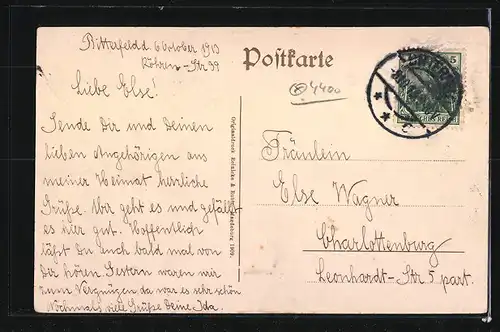 Bittafeldd. 6 October 1913
Röhren-Str 39
Postkarte
⊛4400
Liebe Else!
Sende Dir und Deinen
lieben Angehörigen aus
meiner Heimat herrliche
Grüße. Mir geht es und gefällt
es hier gut. Hoffentlich
läßt Du Euch bald mal von
Dir hören. Gestern waren wir
zum Vergnügen da war es sehr schön
Nochmals viele Grüße Deine Ida.
Originaldruck Reinicke & Magdeburg 1909.
Fräulein
Else Wagner
Charlottenburg
Leonhardt-Str 5 part.
5